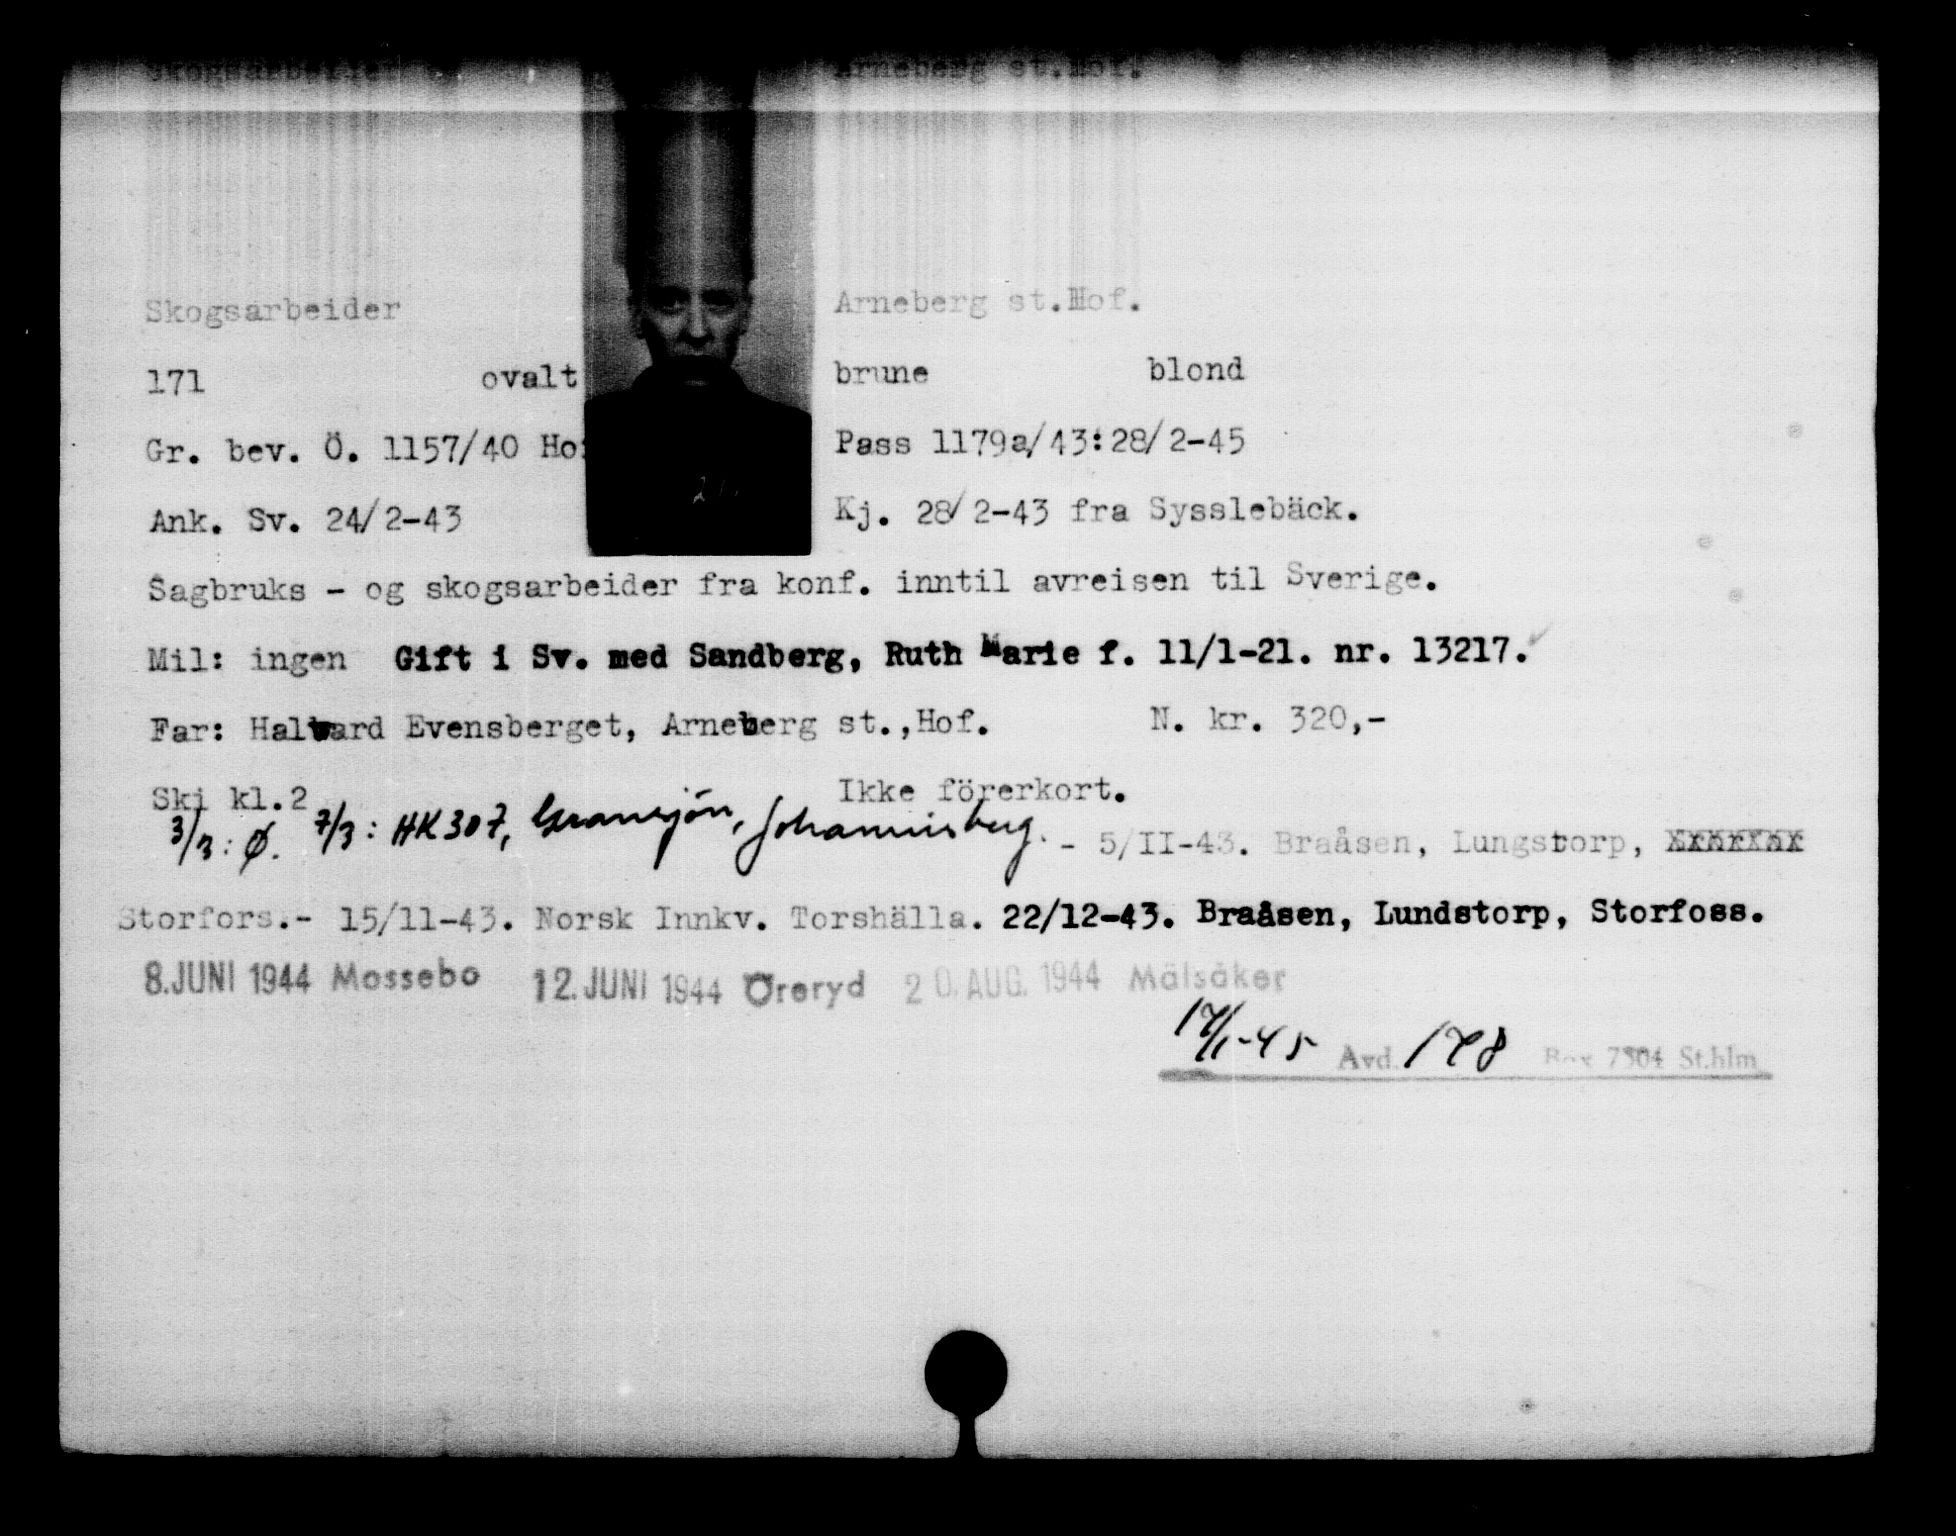 Skogsarbeider Arneberg st.Hof.
Skogsarbeider Arneberg st.Hof.
171 ovalt brune blond
Gr. bev. Ö. 1157/40 Ho Pass 1179a/43:28/2-45
Ank. Sv. 24/2-43 Kj. 28/2-43 fra Sysslebäck.
Sagbruks - og skogsarbeider fra konf. inntil avreisen til Sverige.
Mil: ingen Gift i Sv. med Sandberg, Ruth Marie f. 11/1-21. nr. 13217.
Far: Halvard Evensberget, Arneberg st.,Hof. N. kr. 320,-
Ski kl.2 Ikke förerkort.
3/3: Ø. 7/3: HK 307, Gransjön, Johannisberg. - 5/II-43. Braåsen, Lungstorp,
Storfors.- 15/11-43. Norsk Innkv. Torshälla. 22/12-43. Braåsen, Lundstorp, Storfoss.
8.JUNI 1944 Mossebo 12.JUNI 1944 Öreryd 20.AUG.1944 Mälsåker
17/1-45 Avd. 178 Box 7304 St.hlm